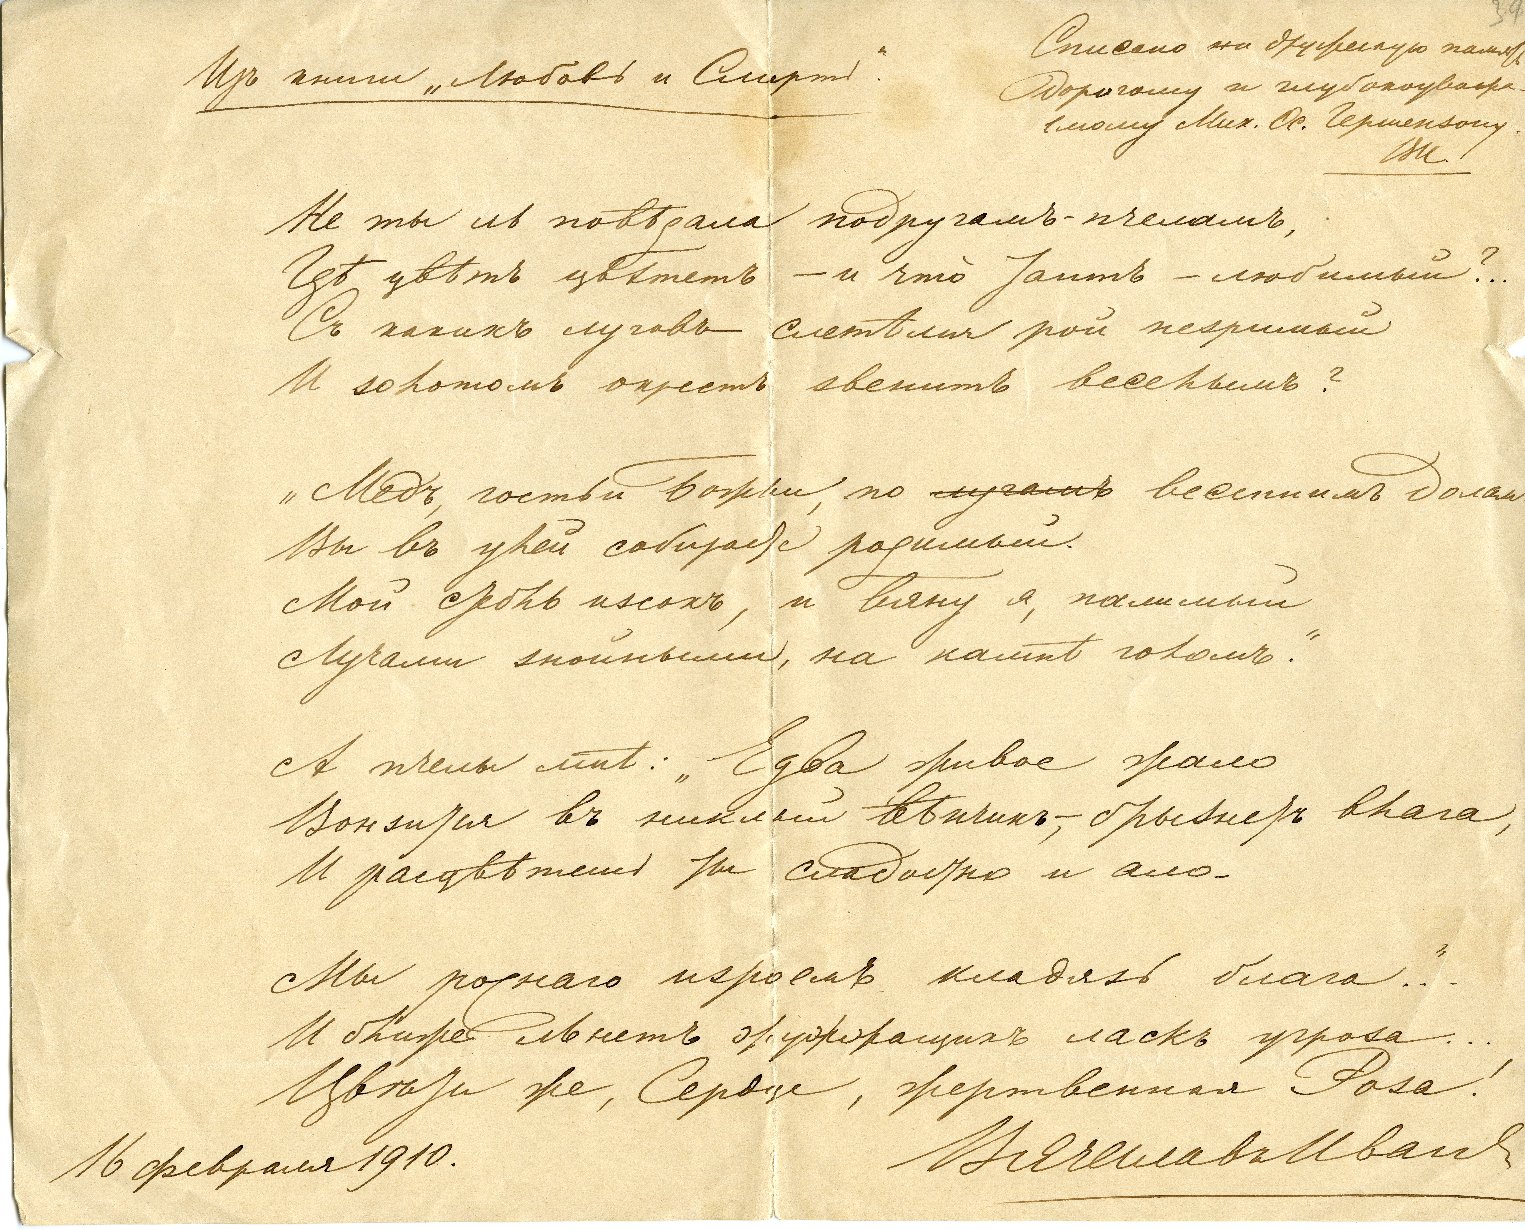 39
Изъ книги „Любовь и Смерть“.
Списано на дружескую память
дорогому и глубокоуважа-
емому Мих. Ос. Гершензону.
ВИ.
Не ты ль повѣдала подругамъ-пчеламъ,
Гдѣ цвѣтъ цвѣтетъ – и что̀ таитъ – любимый?..
Съ какихъ луговъ слетѣлся рой незримый
И золотомъ окрестъ звенитъ веселымъ?
„Медъ, гостьи Божьи, по лугамъ весеннимъ долам
Вы въ улей собираете родимый.
Мой стебль изсохъ, и вяну я, палимый
Лучами знойными, на камнѣ голомъ.“
А пчелы мнѣ: „Едва живое жало
Вонзится въ никлый вѣнчикъ, – брызнетъ влага,
И расцвѣтешь ты сладостно и ало –
Мы роднаго изроемъ кладязь блага“...
И ближе льнетъ жужжащихъ ласкъ угроза...
Цвѣти же, Сердце, жертвенная Роза!
16 февраля 1910.
Вячеславъ Ивановъ